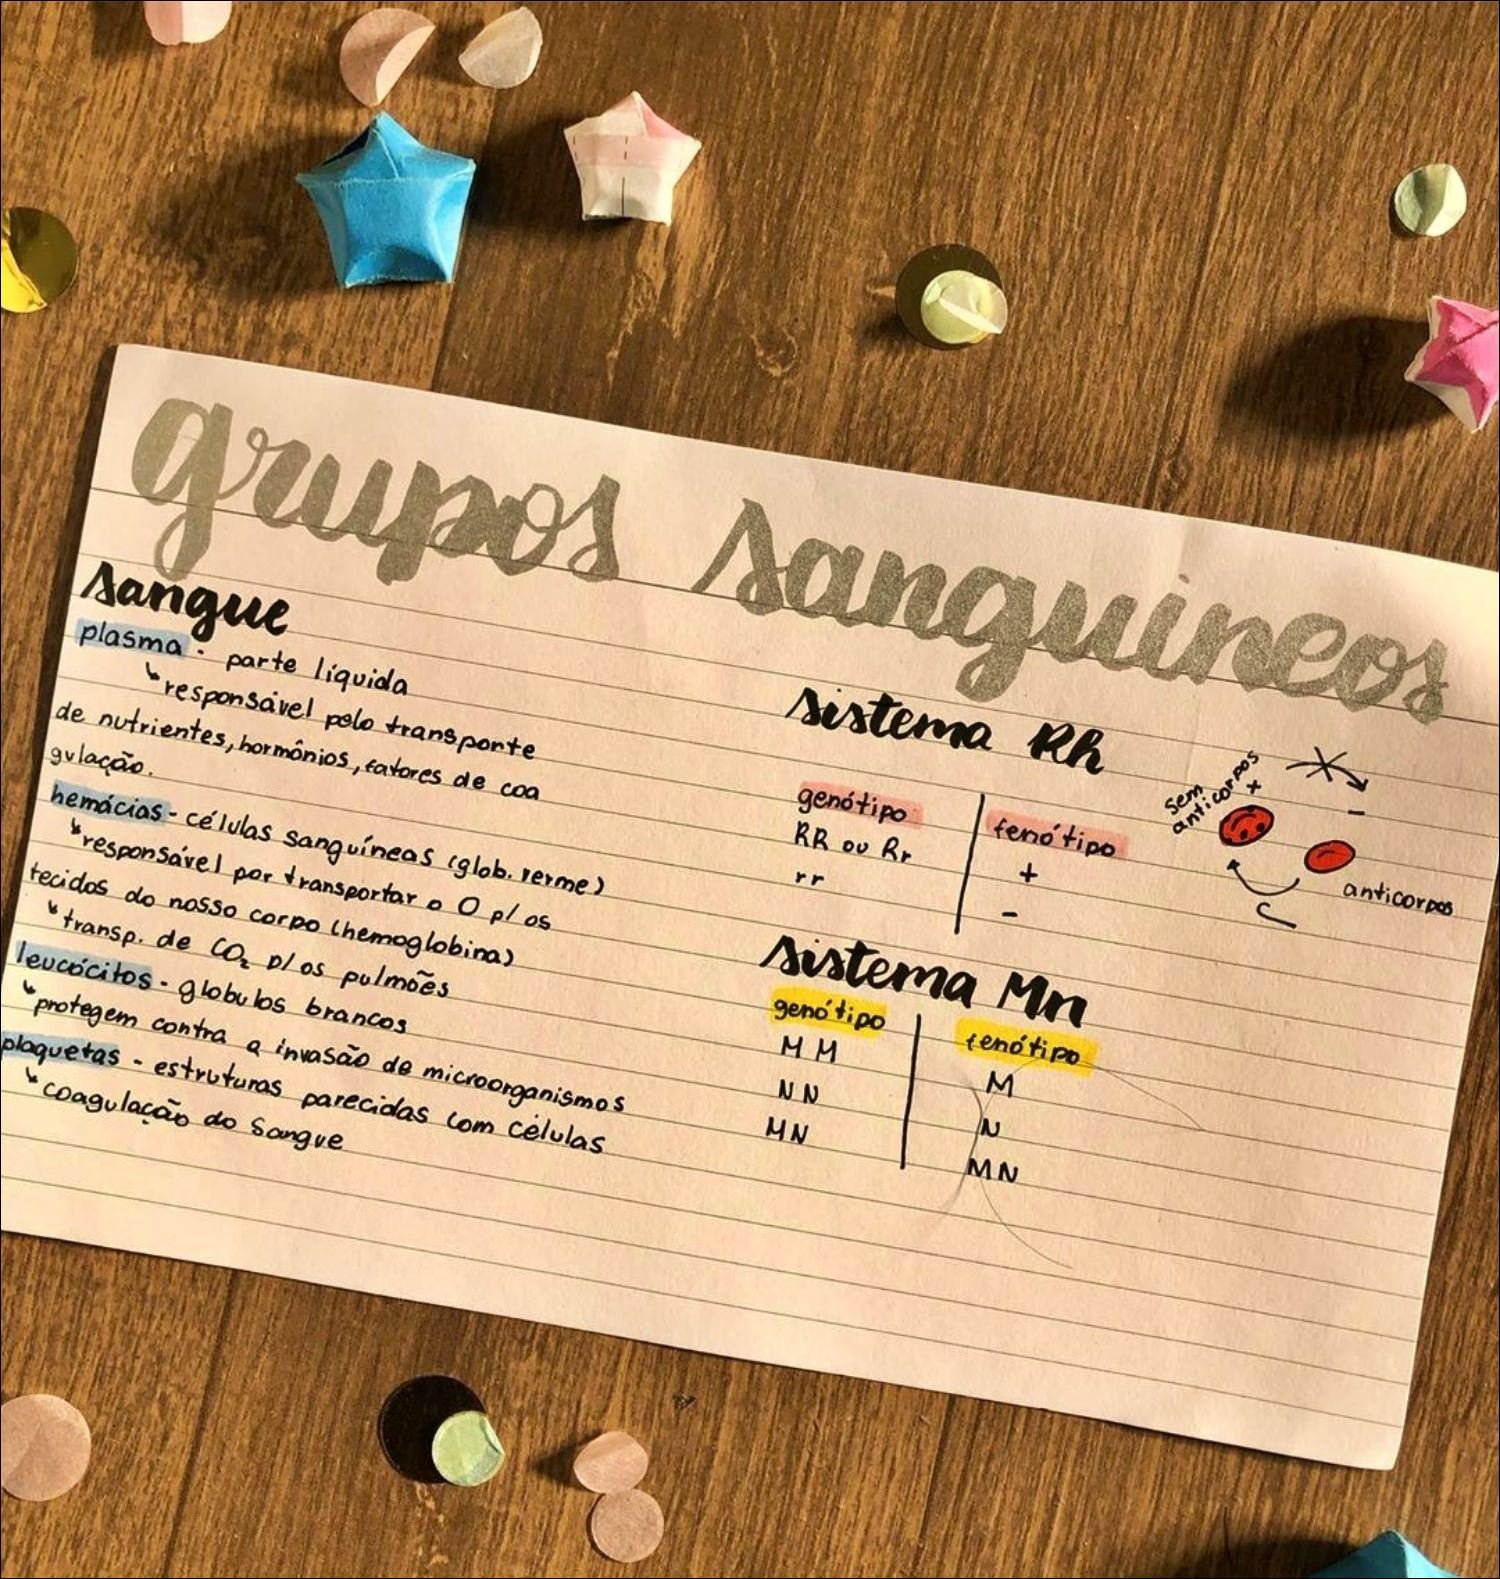 grupos sanguineos
sangue
plasma - parte líquida
↳ responsável pelo transporte
de nutrientes, hormônios, fatores de coa
gulação.
hemácias - células sanguíneas (glob. verme)
↳ responsável por transportar o O p/ os
tecidos do nosso corpo (hemoglobina)
↳ transp. de CO₂ p/ os pulmões
leucócitos - globulos brancos
↳ protegem contra a invasão de microorganismos
plaquetas - estruturas parecidas com células
↳ coagulação do sangue
sistema Rh
genótipo | fenótipo
RR ou Rr | +
rr | -
sem
anticorpos
+
-
anticorpos
sistema Mn
genótipo | fenótipo
MM | M
NN | N
MN | MN